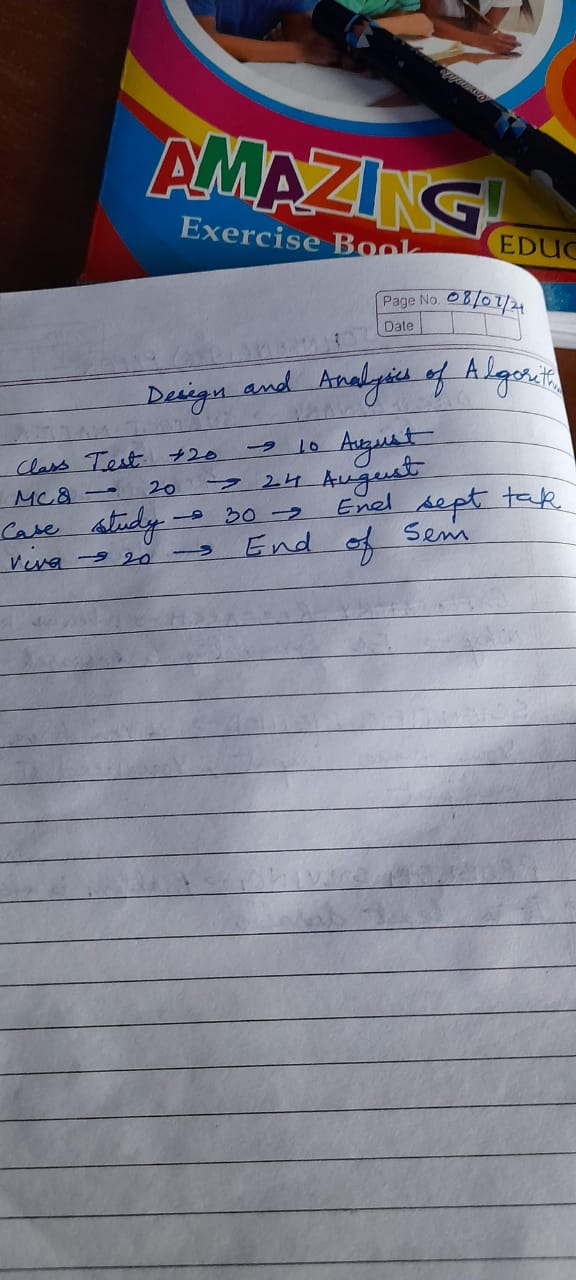 AMAZING!
Exercise Book
EDUC
Page No. 08/07/21
Date
Design and Analysis of Algorithm
Class Test → 20 → 10 August
MCQ → 20 → 24 August
Case study → 30 → End sept tak
Viva → 20 → End of Sem